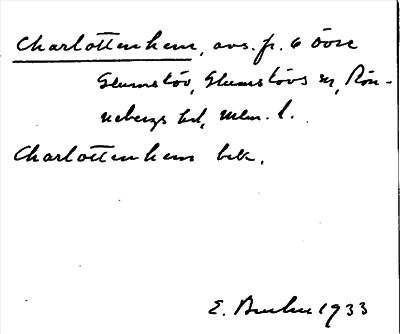 Charlottenhem, avs. fr. 6 Övre
Glumstöv, Glumslövs sn, Rön-
nebergs hd, Mlm. l.
Charlottenhem bek.
E. 1933